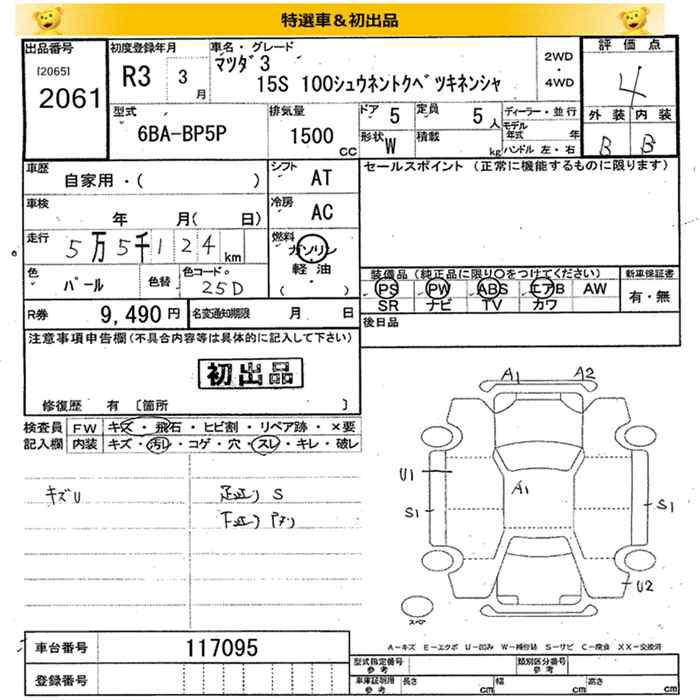 特選車＆初出品
出品番号
[2065]
2061
初度登録年月
R3 3月
車名・グレード
マツダ3
15S 100シュウネントクベツキネンシャ
2WD
・
4WD
評価点
4
外装 内装
B B
型式
6BA-BP5P
排気量
1500 CC
ドア 5
定員 5人
形状 W
積載 kg
ディーラー・並行
モデル年式 年
ハンドル 左・右
車歴
自家用・( )
シフト AT
セールスポイント (正常に機能するものに限ります)
車検
年 月( 日)
冷房 AC
走行
5万5千124km
燃料
ガソリン
軽油
( ・ )
色
パール
色替
色コード。
25D
装備品 (純正品に限り○をつけてください)
新車保証書
PS PW ABS エアB AW
有・無
SR ナビ TV カワ
R券 9,490円
名変通知期限 月 日
後日品
注意事項申告欄 (不具合内容等は具体的に記入して下さい)
初出品
修復歴 有 [箇所 ]
検査員 FW キズ・飛石・ヒビ割・リペア跡・×要
記入欄 内装 キズ・汚レ・コゲ・穴・スレ・キレ・破レ
キズU
S
A1 A2
U1
A1
S1 S1
U2
スペア
車台番号 117095
A-キズ E-エクボ U-凹み W-補修跡 S-サビ C-腐食 XX-交換済
登録番号
型式指定番号 参考
類別区分番号 参考
車庫証明用 参考
長さ cm 幅 cm 高さ cm